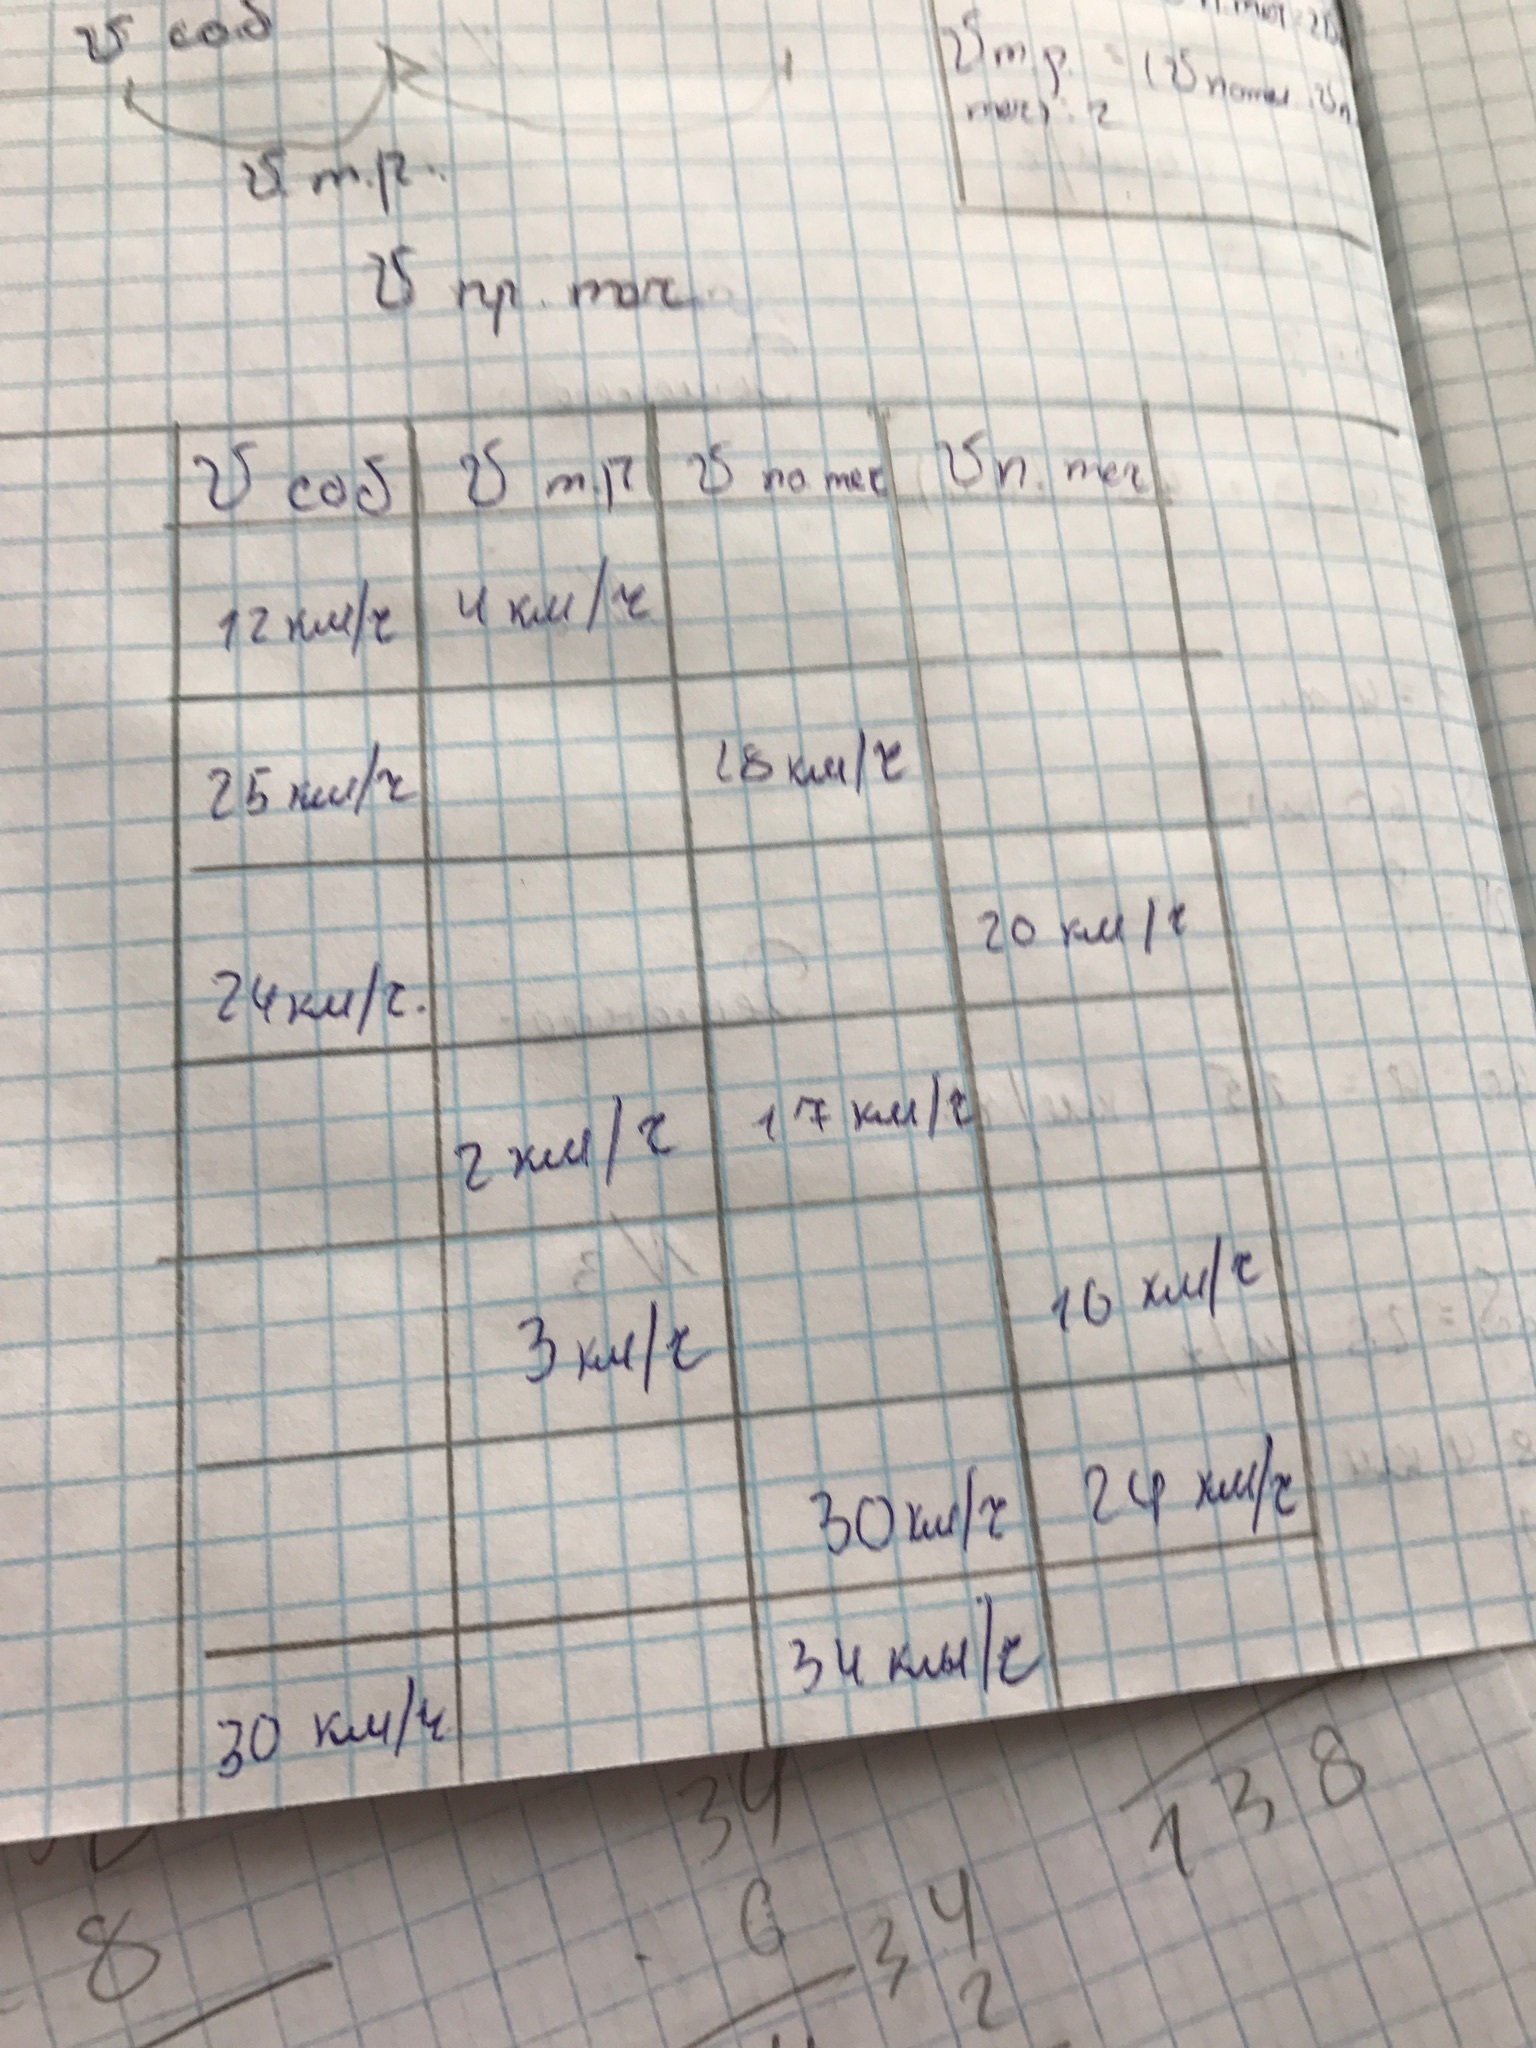 v соб
v т.р.
v пр. теч
v т.р. = (v по теч
теч) : 2
v соб v т.р v по теч v п. теч.
12 км/ч 4 км/ч
25 км/ч 28 км/ч
24 км/ч. 20 км/ч
2 км/ч 17 км/ч
3 км/ч 16 км/ч
30 км/ч 24 км/ч
30 км/ч 34 км/ч
34
6
138
8
34
2